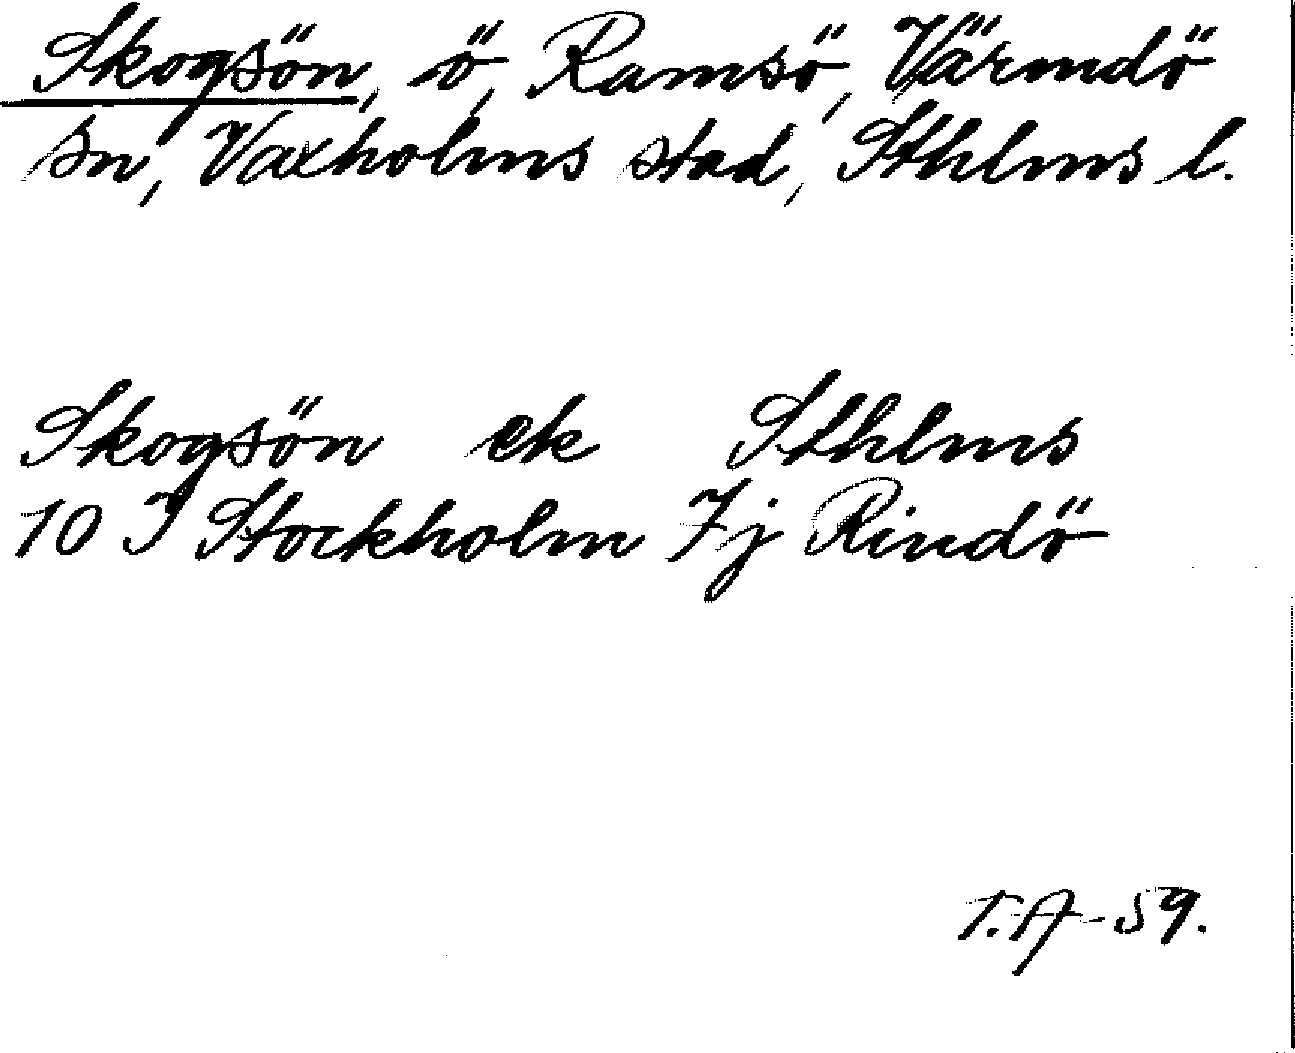 Skogsön, ö, Ramsö, Värmdö
sn, Vaxholms stad, Sthlms l.
Skogsön ek Sthlms
10 I Stockholm 7j Rindö
T.A-59.